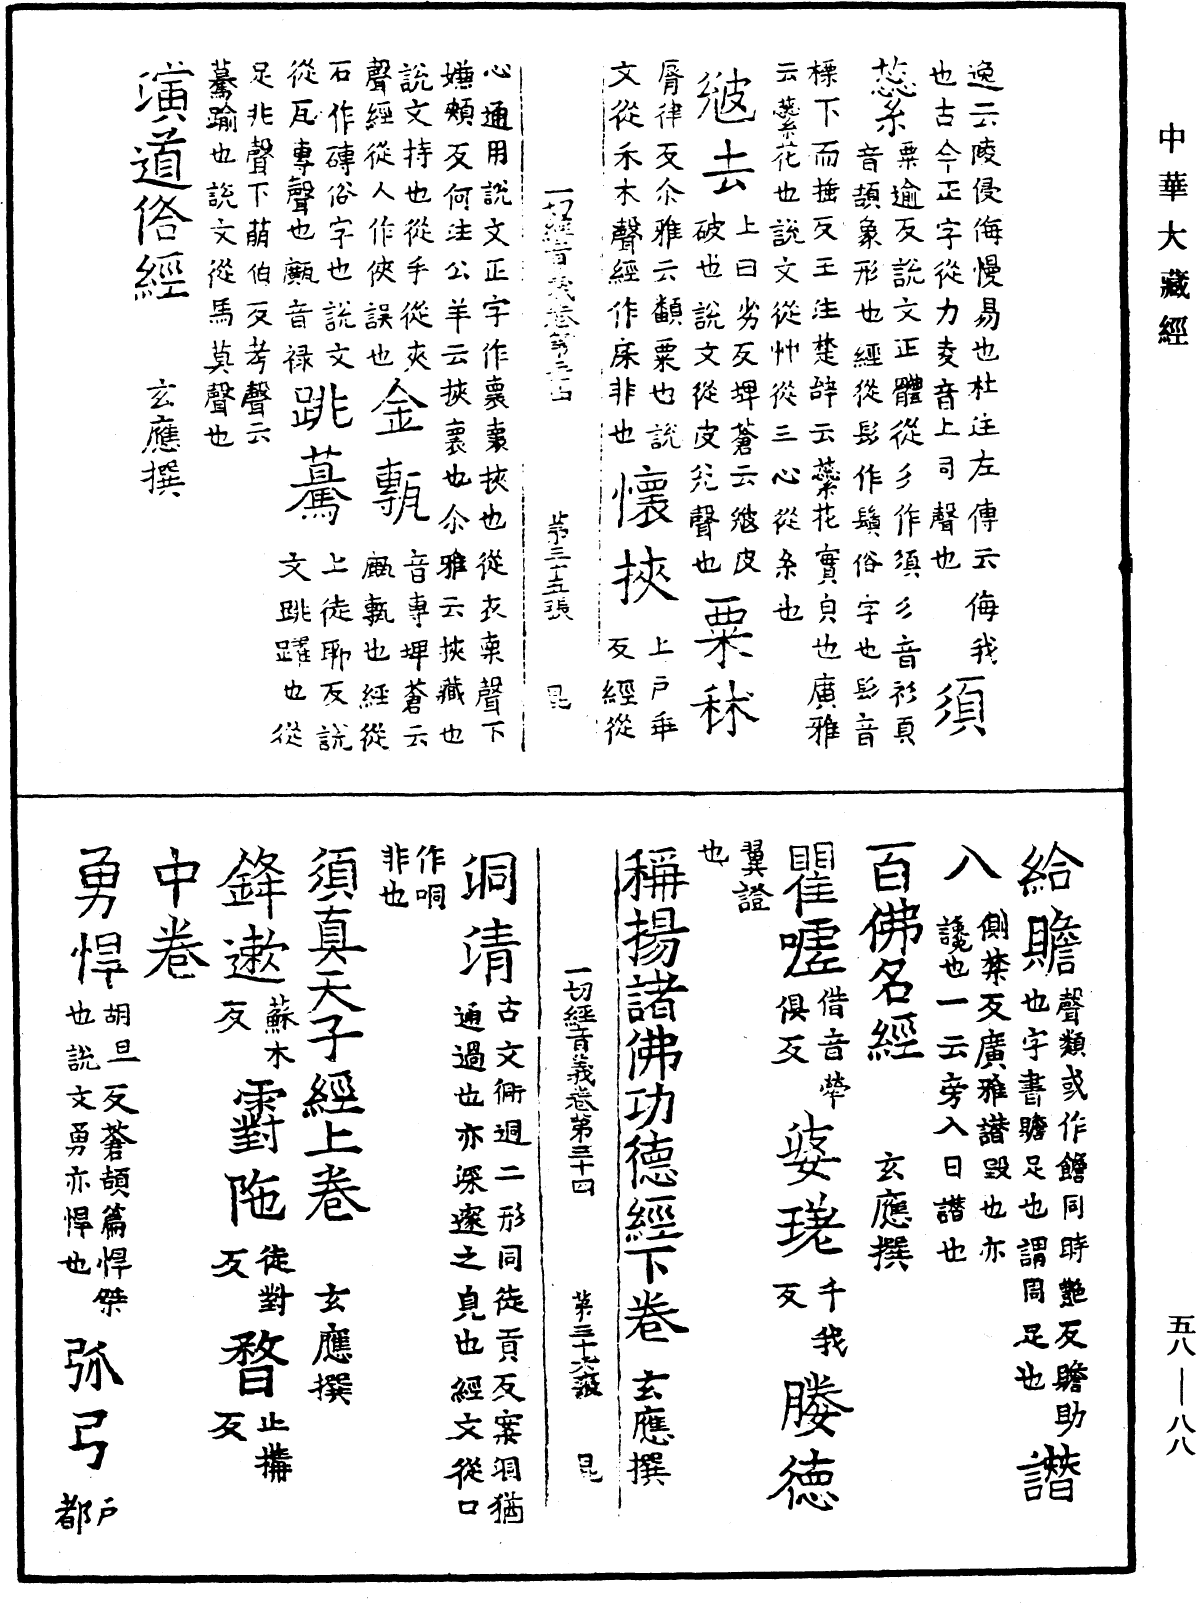 中華大藏經
逸云陵侵侮慢易也杜注左傳云侮我
也古今正字從力夌音上司聲也
須
蘂
粟逾反說文正體從彡作須彡音衫頁
音頡象形也經從髟作鬚俗字也髟音
摽下而捶反王注楚辭云蘂花實皃也廣雅
云蘂花也說文從艸從三心從糸也
皴去
上曰劣反埤蒼云皴皮
破也說文從皮
聲也
粟秫
脣律反尒雅云䵖粟也說
文從禾木聲經作床非也
懷挾
上戶乖
反經從
一切經音義卷第三十四 第三十五張 昆
心通用說文正字作褱褱挾也從衣𥄳聲下
嫌頰反何注公羊云挾褱也尒雅云挾藏也
說文持也從手從夾
聲經從人作俠誤也
金甎
音專埤蒼云
甎也經從
石作磚俗字也說文
從瓦專聲也㼾音祿
跳驀
上徒聊反說
文跳躍也從
足兆聲下萠伯反考聲云
驀踰也說文從馬莫聲也
演道俗經 玄應撰
給贍
聲類或作饍同時艷反贍助
也字書贍足也謂周足也
譖
八
側禁反廣雅譖毀也亦
讒也一云旁入曰譖也
百佛名經 玄應撰
瞿嘘
借音
俱反
婆瑳
千我
反
䁖德
翼證
也
稱揚諸佛功德經下卷 玄應撰
一切經音義卷第三十四 第三十六張 昆
洞清
古文衕迵二形同徒貢反案洞猶
通過也亦深邃之皃也經文從口
作哃
非也
須真天子經上卷 玄應撰
鋒漱
蘇木
反
䨴阤
徒對
反
瞀
止
反
中卷
勇悍
胡旦反蒼頡篇悍桀
也說文勇亦悍也
弥弓
戶
都
五八—八八